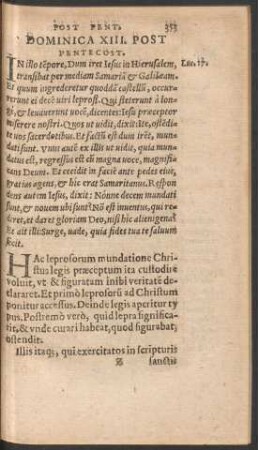 POST PENT. 353
DOMINICA XIII. POST
PENTECOST.
IN illo tẽpore, Dum iret Iesus in Hierusalem, Luc. 17.
transibat per mediam Samariã & Galilæam.
Et quum ingrederetur quoddã castellũ, occur-
rerunt ei decẽ uiri leprosi. Qui steterunt à lon-
gè, & leuauerunt uocẽ, dicentes: Iesu præceptor
miserere nostri. Quos ut uidit, dixit: Ite, ostẽdite
uos sacerdotibus. Et factũ est dum irẽt, mun-
dati sunt. Vnus autẽ ex illis ut uidit, quia mun-
datus est, regressus est cũ magna uoce, magnifi-
cans Deum. Et cecidit in faciẽ ante pedes eius,
gratias agens, & hic erat Samaritanus. Respon
dens autem Iesus, dixit: Nónne decem mundati
sunt, & nouem ubi sunt? Nõ est inuentus, qui re-
diret, et daret gloriam Deo, nisi hic alienigena?
Et ait illi: Surge, uade, quia fides tua te saluum
fecit.
HAc leprosorum mundatione Chri-
stus legis præceptum ita custodiri
voluit, vt & figuratam inibi veritatẽ de-
clararet. Et primò leprosorũ ad Christum
ponitur accessus. Deinde legis aperitur ty
pus. Postremò verò, quid lepra significa-
rit, & vnde curari habeat, quod figurabat,
ostendit.
Illis itaq;, qui exercitatos in scripturis
Z sanctis